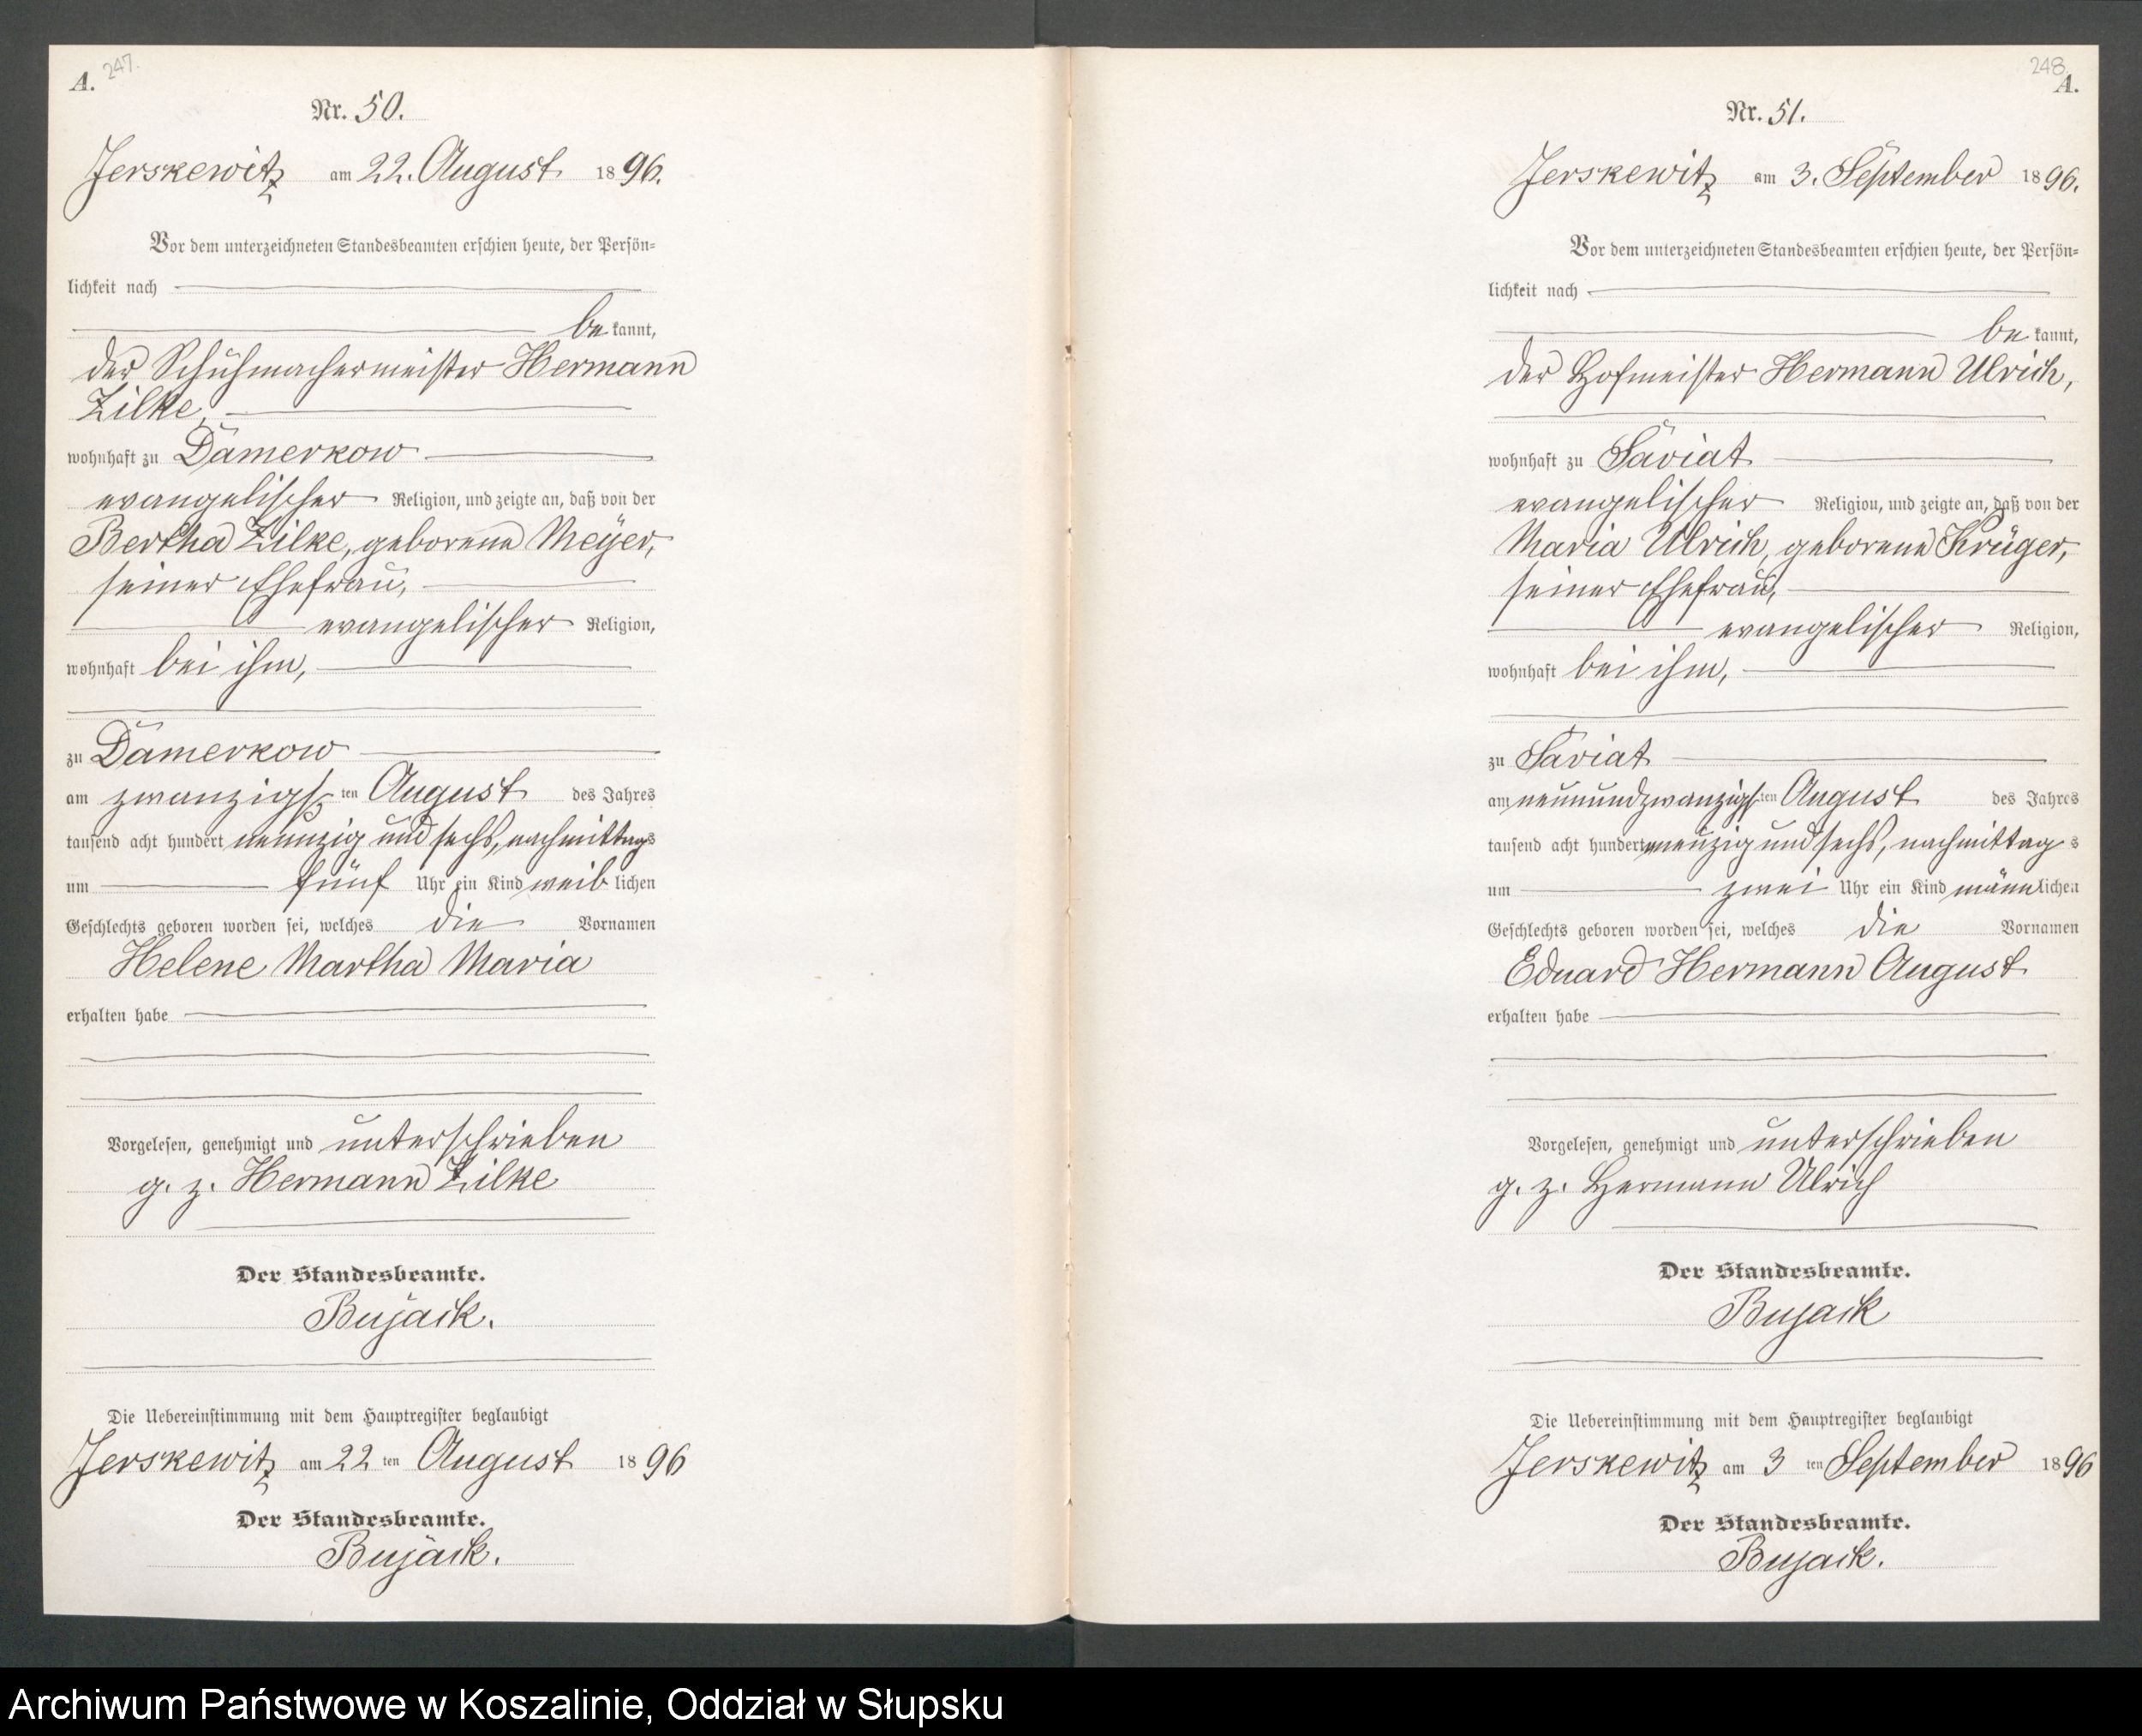 A.
247.
Nr. 50.
Jerskewitz am 22. August 1896.
Vor dem unterzeichneten Standesbeamten erschien heute, der Persön-
lichkeit nach
bekannt,
der Schuhmachermeister Hermann
Zilke,
wohnhaft zu Damerkow
evangelischer Religion, und zeigte an, daß von der
Bertha Zilke, geborene Meyer,
seiner Ehefrau,
evangelischer Religion,
wohnhaft bei ihm,
zu Damerkow
am zwanzigsten August des Jahres
tausend acht hundert neunzig und sechs, nachmittags
um fünf Uhr ein Kind weiblichen
Geschlechts geboren worden sei, welches die Vornamen
Helene Martha Maria
erhalten habe
Vorgelesen, genehmigt und unterschrieben
g. z. Hermann Zilke
Der Standesbeamte.
Bujack.
Die Uebereinstimmung mit dem Hauptregister beglaubigt
Jerskewitz am 22 ten August 1896
Der Standesbeamte.
Bujack.
248
A.
Nr. 51.
Jerskewitz am 3. September 1896.
Vor dem unterzeichneten Standesbeamten erschien heute, der Persön-
lichkeit nach
bekannt,
der Hofmeister Hermann Ulrich,
wohnhaft zu Saviat
evangelischer Religion, und zeigte an, daß von der
Maria Ulrich, geborene Krüger,
seiner Ehefrau,
evangelischer Religion,
wohnhaft bei ihm,
zu Saviat
am neunundzwanzigsten August des Jahres
tausend acht hundert neunzig und sechs, nachmittags
um zwei Uhr ein Kind männlichen
Geschlechts geboren worden sei, welches die Vornamen
Eduard Hermann August
erhalten habe
Vorgelesen, genehmigt und unterschrieben
g. z. Hermann Ulrich
Der Standesbeamte.
Bujack
Die Uebereinstimmung mit dem Hauptregister beglaubigt
Jerskewitz am 3 ten September 1896
Der Standesbeamte.
Bujack.
Archiwum Państwowe w Koszalinie, Oddział w Słupsku